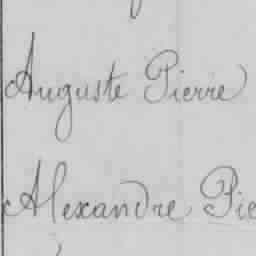 Auguste Pierre
Alexandre Pie